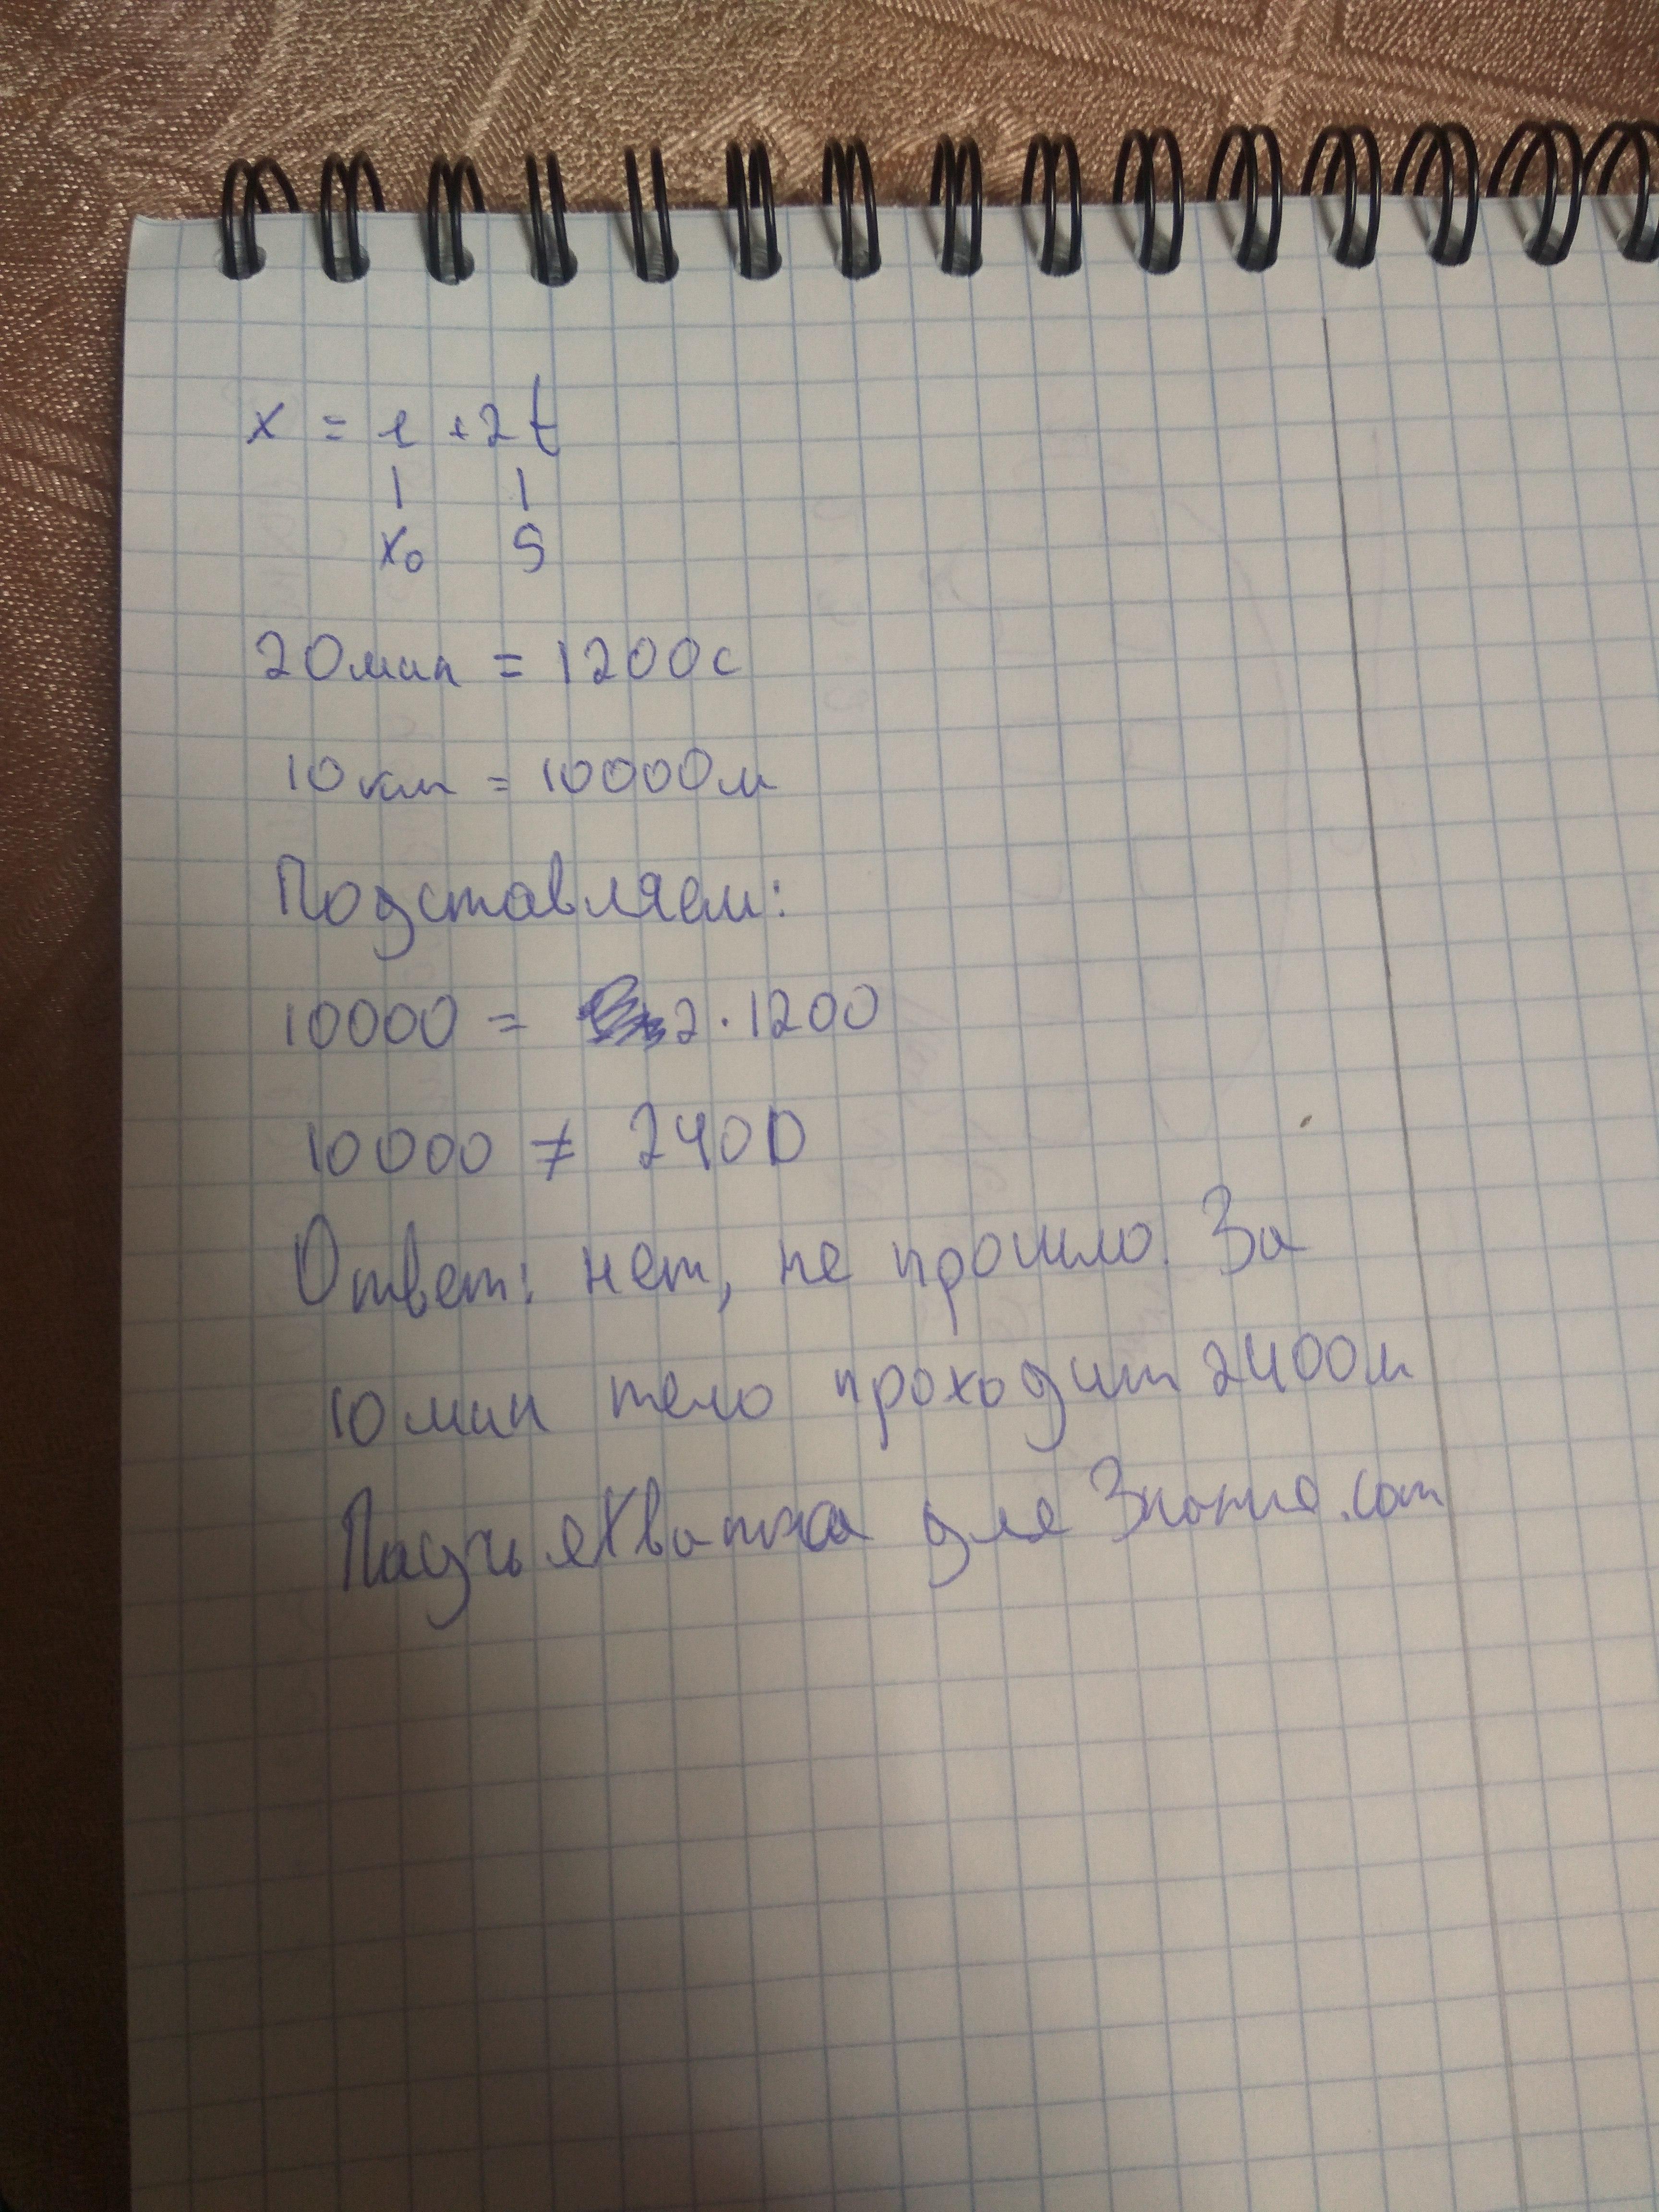 x = l + 2t
| |
x₀ S
20мин = 1200с
10км = 10000м
Подставляем:
10000 = 2·1200
10000 ≠ 2400
Ответ: нет, не прошло. За
10 мин тело проходит 2400м
ПаучьяХватка для Знания.com